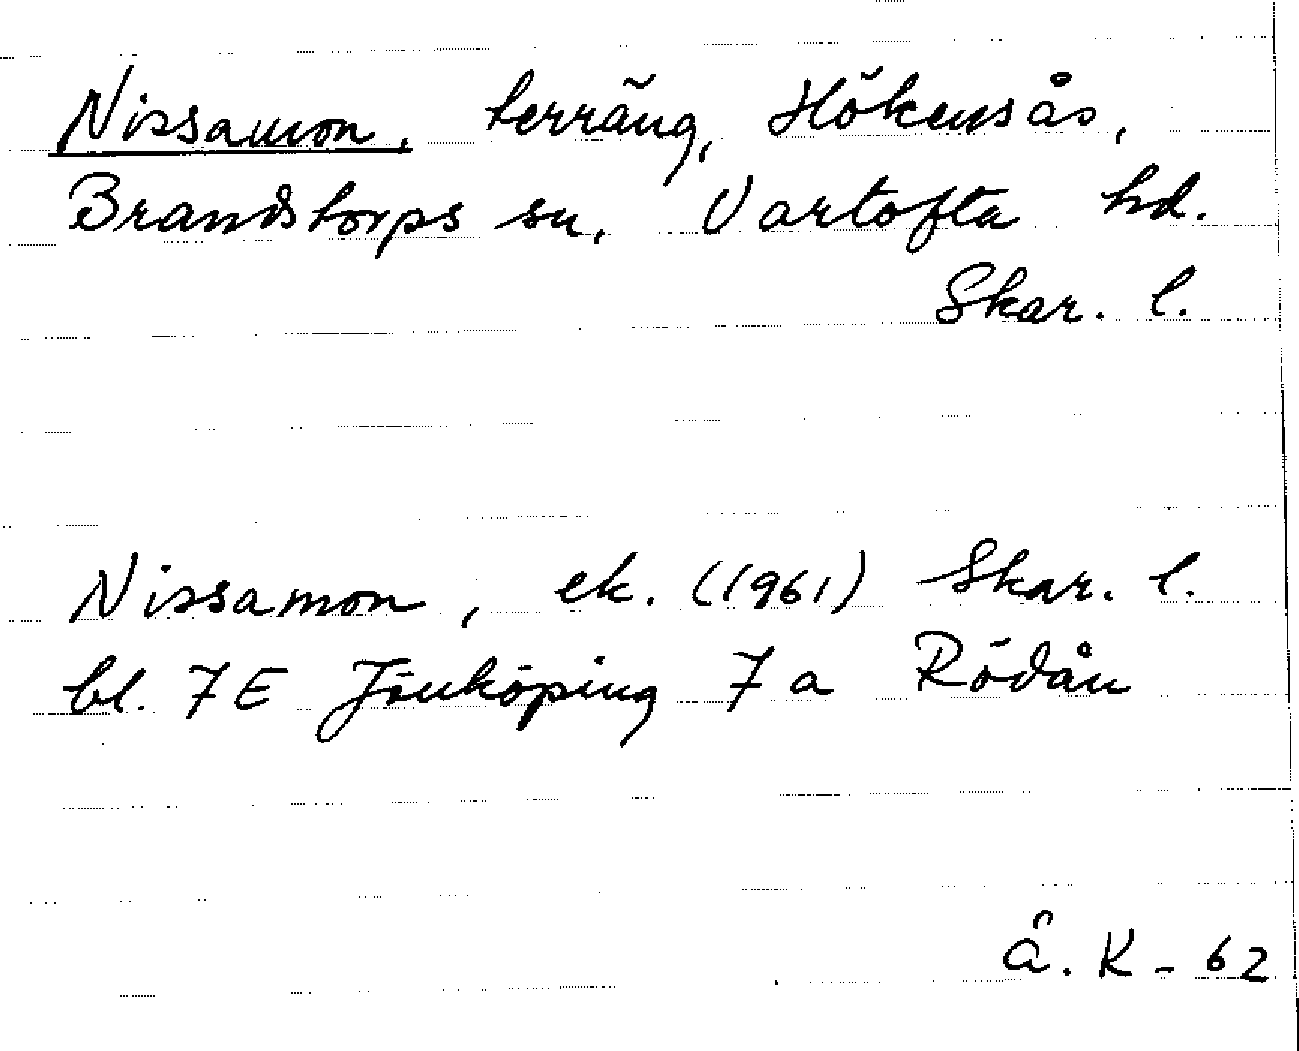 Nissamon, terräng, Hökensås,
Brandstorps sn, Vartofta hd.
Skar. l.
Nissamon, ek. (1961) Skar. l.
bl. 7E Jönköping 7 a Rödån
Å. K - 62